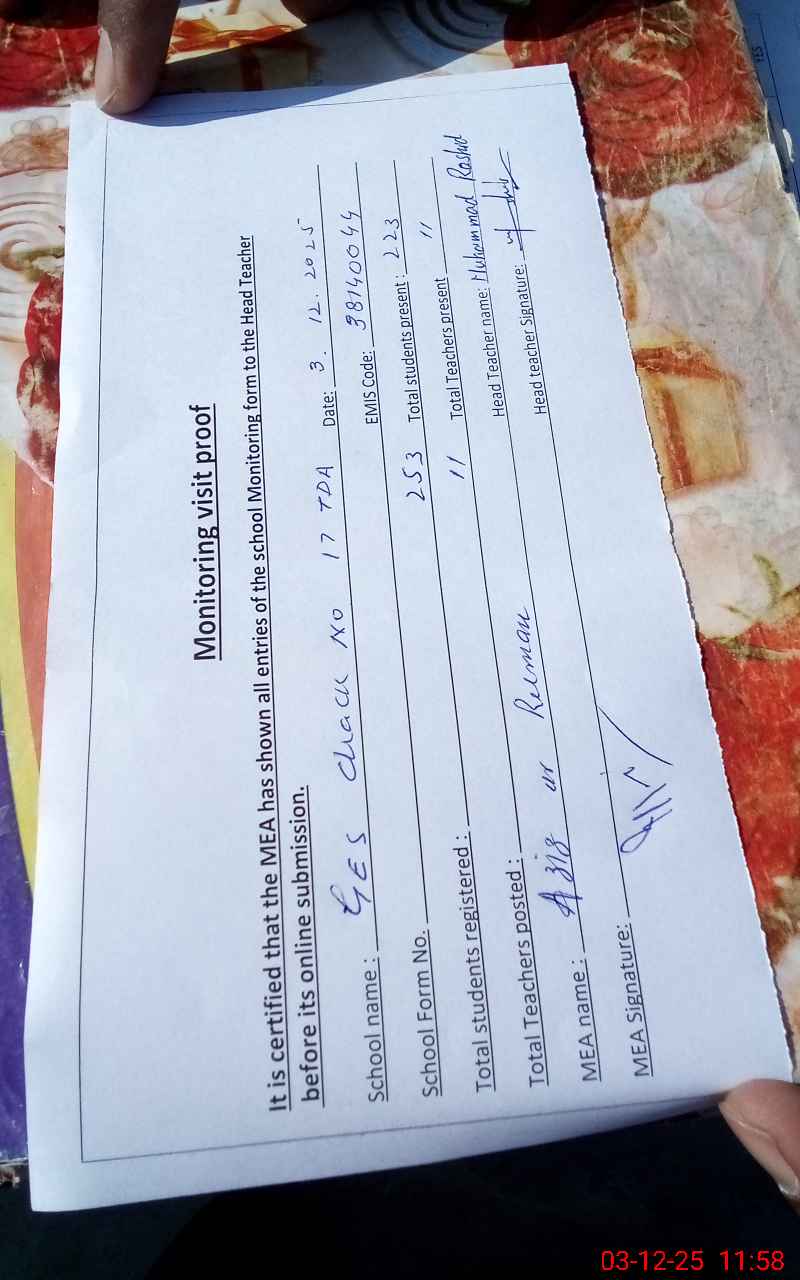 Monitoring visit proof
It is certified that the MEA has shown all entries of the school Monitoring form to the Head Teacher
before its online submission.
School name : GES Chack No 17 TDA Date: 3. 12. 2025
School Form No. EMIS Code: 38140044
Total students registered : 253 Total students present : 223
Total Teachers posted : 11 Total Teachers present 11
MEA name : Aziz ur Rehman Head Teacher name: Muhammad Rashid
MEA Signature: Head teacher Signature:
YES
03-12-25 11:58